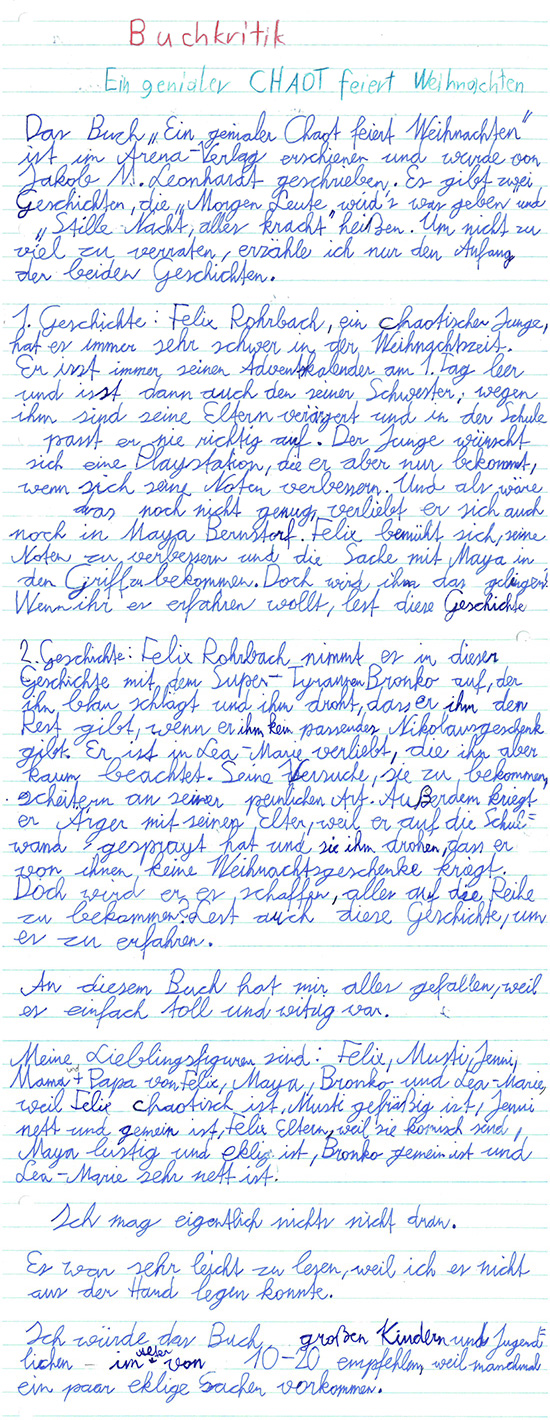 Buchkritik
Ein genialer CHAOT feiert Weihnachten
Das Buch „Ein genialer Chaot feiert Weihnachten"
ist im Arena-Verlag erschienen und wurde von
Jakob M. Leonhardt geschrieben. Es gibt zwei
Geschichten, die „Morgen Leute, wird's was geben und
„Stille Nacht, alles kracht" heißen. Um nicht zu
viel zu verraten, erzähle ich nur den Anfang
der beiden Geschichten.
1. Geschichte: Felix Rohrbach, ein chaotischer Junge,
hat es immer sehr schwer in der Weihnachtszeit.
Er isst immer seinen Adventskalender am 1. Tag leer
und isst dann auch den seiner Schwester, wegen
ihm sind seine Eltern verärgert und in der Schule
passt er nie richtig auf. Der Junge wünscht
sich eine Playstation, die er aber nur bekommt,
wenn sich seine Noten verbessern. Und als wäre
das noch nicht genug, verliebt er sich auch
noch in Maya Bernstorf. Felix bemüht sich, seine
Noten zu verbessern und die Sache mit Maya in
den Griff zu bekommen. Doch wird ihm das gelingen?
Wenn ihr es erfahren wollt, lest diese Geschichte
2. Geschichte: Felix Rohrbach nimmt es in dieser
Geschichte mit dem Super-Tyrannen Bronko auf, der
ihn blau schlägt und ihm droht, dass er ihm den
Rest gibt, wenn er ihm kein passendes Nikolausgeschenk
gibt. Er ist in Lea-Marie verliebt, die ihn aber
kaum beachtet. Seine Versuche, sie zu bekommen,
scheitern an seiner peinlichen Art. Außerdem kriegt
er Ärger mit seinen Elter, weil er auf die Schul=
wand gesprayt hat und sie ihm drohen, dass er
von ihnen keine Weihnachtsgeschenke kriegt.
Doch wird er es schaffen, alles auf die Reihe
zu bekommen? Lest auch diese Geschichte, um
es zu erfahren.
An diesem Buch hat mir alles gefallen, weil
es einfach toll und witzig war.
Meine Lieblingsfiguren sind: Felix, Musti, Jenni,
Mama + Papa von Felix, Maya, Bronko und Lea-Marie,
weil Felix chaotisch ist, Musti gefräßig ist, Jenni
nett und gemein ist, Felix Eltern, weil sie komisch sind,
Maya lustig und eklig ist, Bronko gemein ist und
Lea-Marie sehr nett ist.
Ich mag eigentlich nichts nicht dran.
Es war sehr leicht zu lesen, weil ich es nicht
aus der Hand legen konnte.
Ich würde das Buch großen Kindern und Jugend=
lichen - im Alter von 10-20 empfehlen, weil manchmal
ein paar eklige Sachen vorkommen.